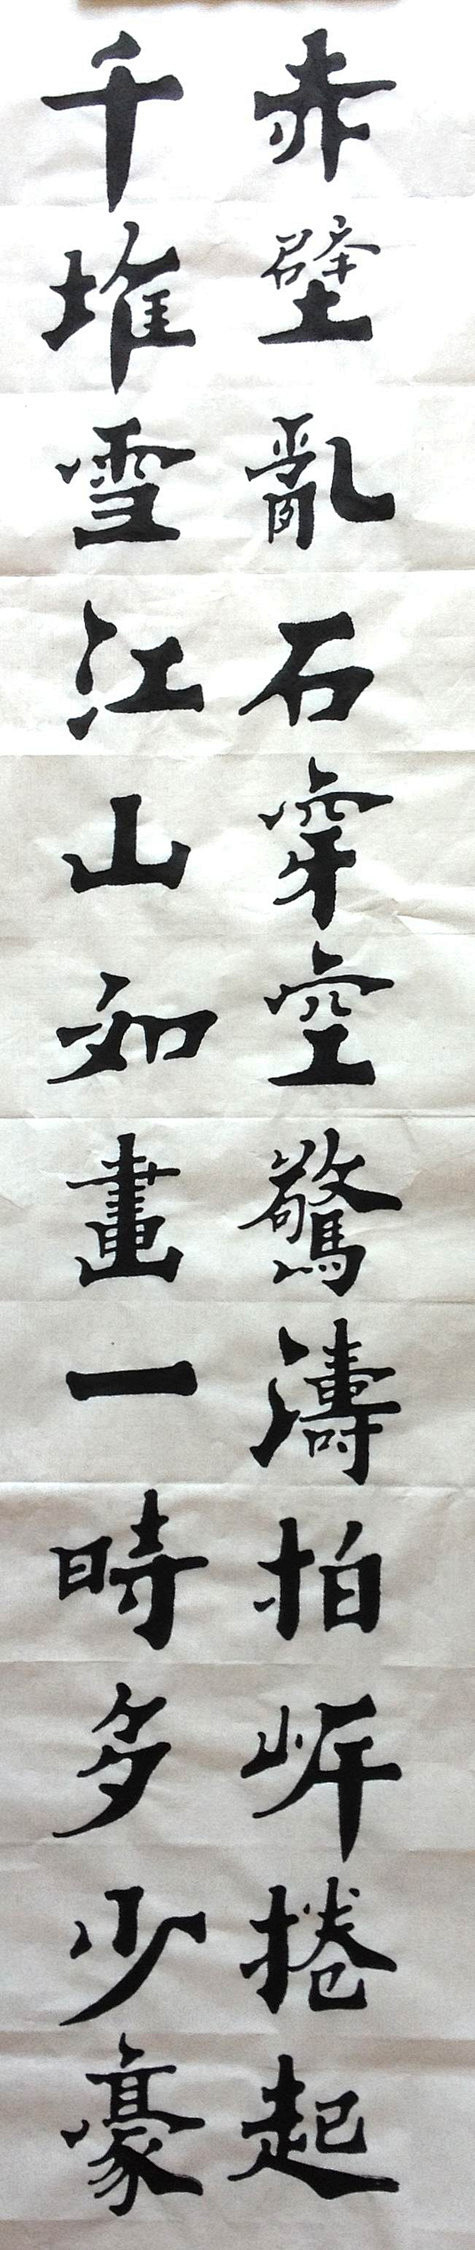 赤壁亂石穿空驚濤拍岸捲起
千堆雪江山如畫一時多少豪